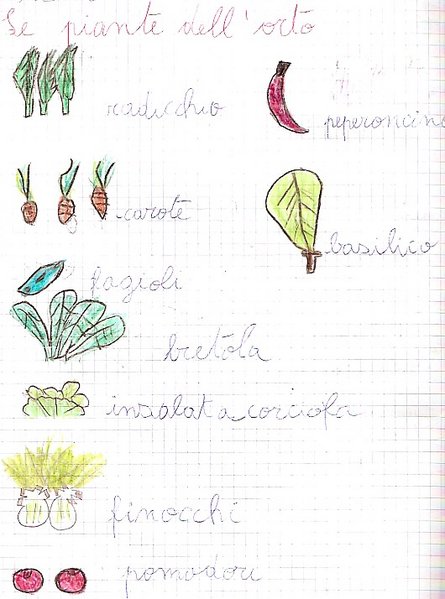 Le piante dell'orto
radicchio
peperoncino
carote
basilico
fagioli
bretola
insalata corciofa
finocchi
pomodori